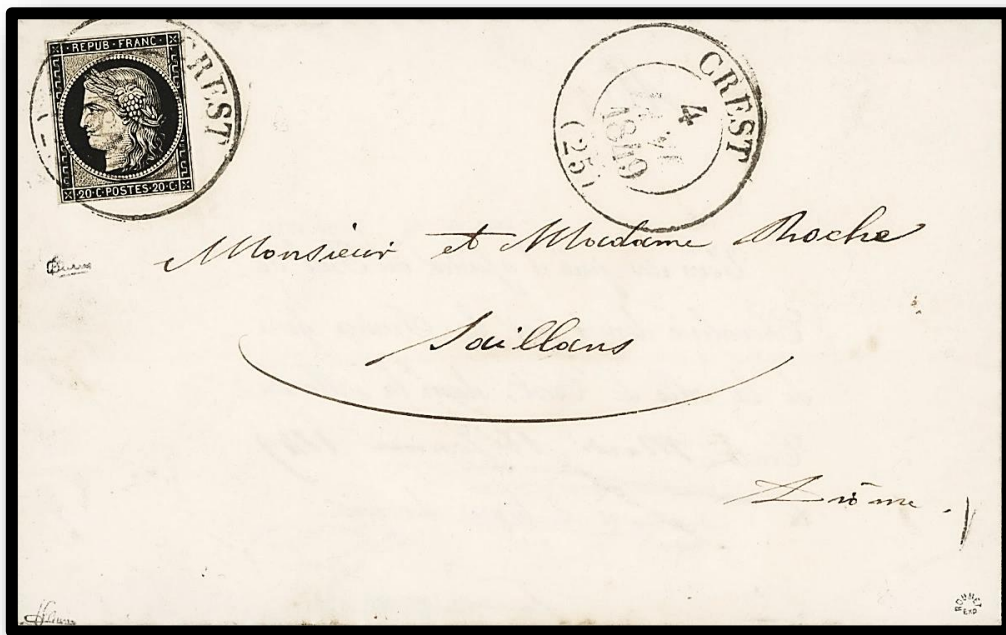 REPUB·FRANC·
20·C·POSTES·20·C·
CREST
CREST
4
JANV
1849
(25)
Monsieur et Madame Roche
Saillans
Drôme.
ROUMET
EXP